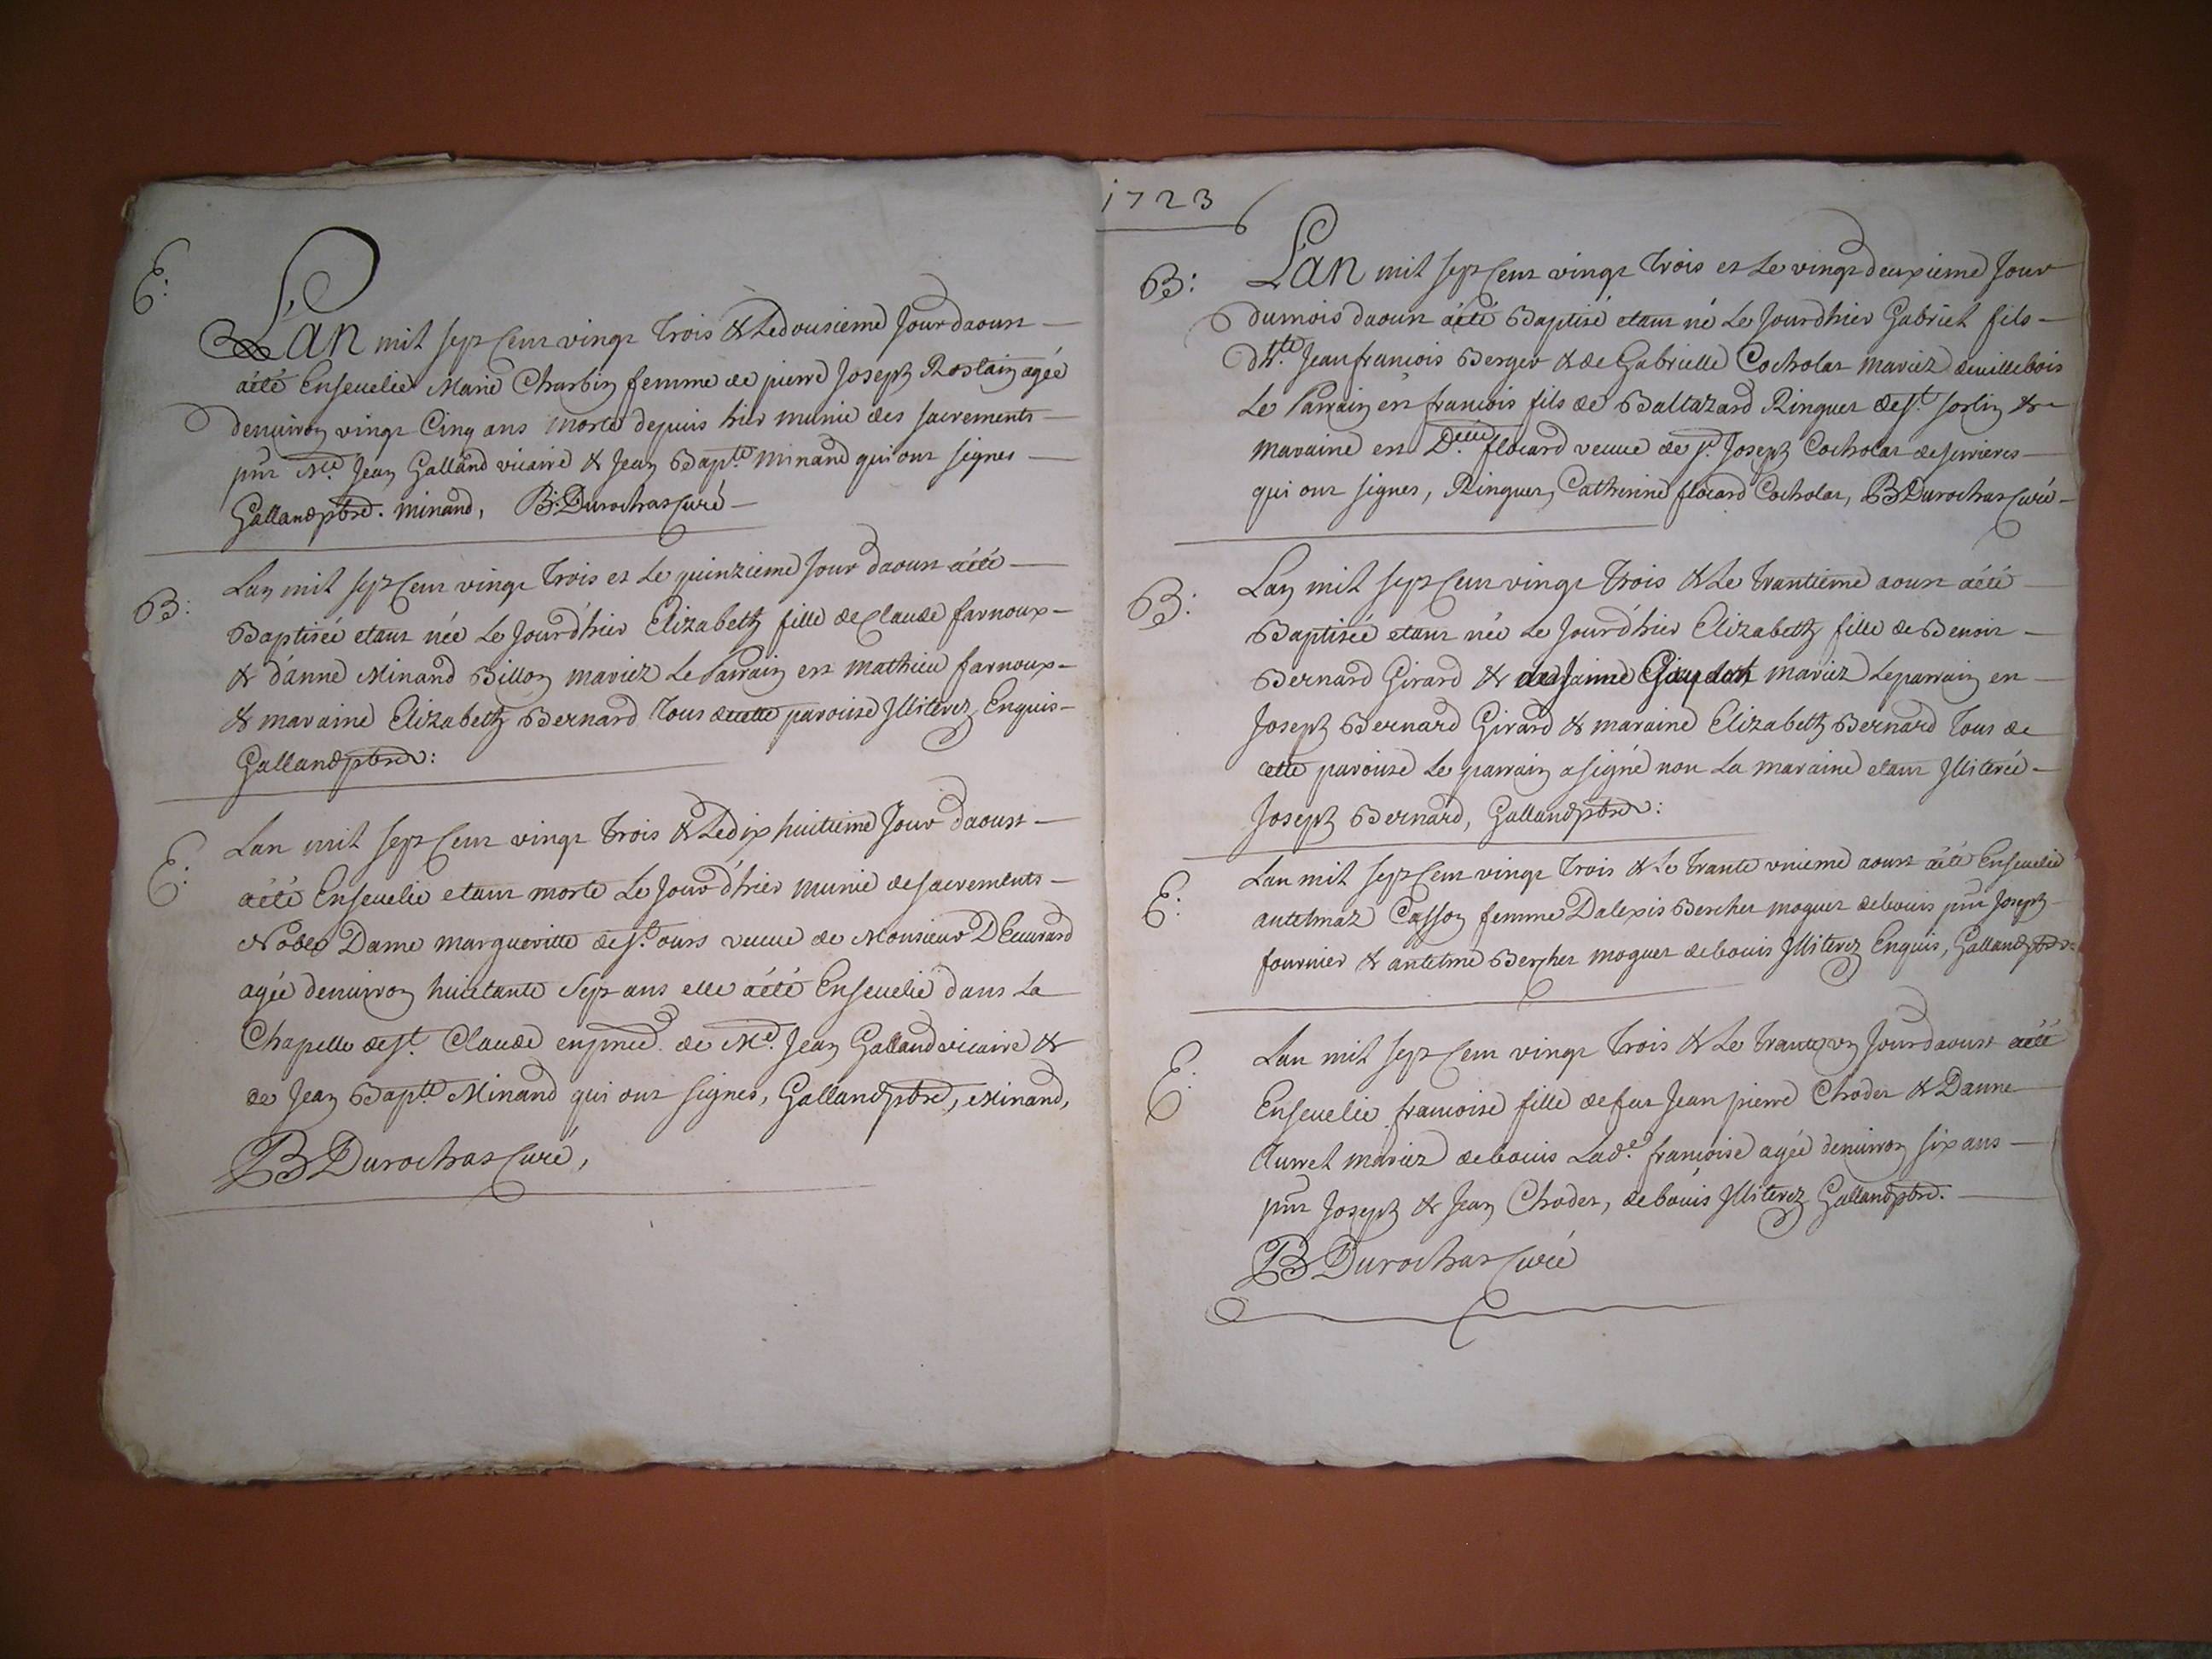 1723
E:
L'an mil sept cent vingt trois & le dousieme jour daoust
a été Ensevelie Marie Charbin femme de pierre Joseph Roslain agée
denuiron vingt Cinq ans morte depuis hier munie des sacrements
pnt Mre. Jean Galland vicaire & Jean Bapte. Minand qui ont signes
Galland ptre. minand, B: Durochat Curé
B:
Lan mil sept cent vingt trois et le quinzieme jour daoust a été
Baptisée etant née le jourdhier Elizabeth fille de Claude farnoux
& d'anne Minand Billon mariez le Parrain est mathieu farnoux
& maraine Elizabeth Bernard tous de cette paroise Illiterez Enquis
Galland ptre:
E:
Lan mil sept cent vingt trois & le dix huitieme jour daoust
a été Ensevelie etant morte le jour d'hier munie de sacrements
Noble Dame margueritte de St. ours veuve de Monsieur DEuurard
agée denuiron huictante sept ans elle a été Ensevelie dans la
Chapelle de St. Claude en pnce. de Mre. Jean Galland vicaire &
de Jean Bapte. Minand qui ont signes, Galland ptre, Minand,
B Durochat Curé,
B:
L'an mil sept cent vingt trois et le vingt deuxieme jour
du mois daoust a été Baptisé etant né le jourdhier Gabriel fils
d Jean francois Berger & de Gabrielle Cocholat mariez de villebois
le Parrain est francois fils de Baltazard Ringuet de St. sorlin &
maraine est Delle. flocard veuve de Sr. Joseph Cocholat de serrieres
qui ont signes, Ringuet, Catherine flocard Cocholat, B Durochat Curé
B:
Lan mil sept cent vingt trois & le trantieme aoust a été
Baptisée etant née le jourd'hier Elizabeth fille de Benoit
Bernard Girard & de janne Guydot mariez le parrain est
Joseph Bernard Girard & maraine Elizabeth Bernard tous de
cette paroise le parrain a signé non la maraine etant Illiterée
Joseph Bernard, Galland ptre:
E:
Lan mil sept cent vingt trois & le trante unieme aoust a été Ensevelie
antelmaz Casson femme Dalexis Bercher moguet de bouis pnt Joseph
fournier & antelme Bercher moguet de bouis Illiterez Enquis, Galland ptre
E:
Lan mil sept cent vingt trois & le trante un jour daoust a été
Ensevelie francoise fille de fut Jean pierre Chodet & Danne
Aurret mariez de bouis lade. francoise agée denuiron six ans
pnt Joseph & Jean Chodet, de bouis Illiterez Galland ptre.
B Durochat Curé